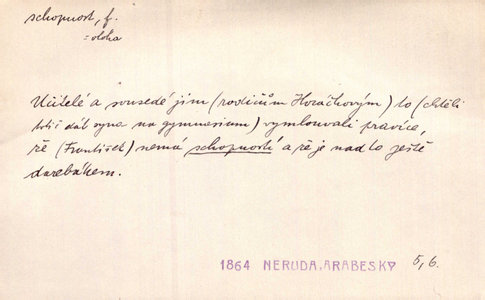 schopnost, f.
= vloha
Učitelé a sousedé jim (rodičům Horáčkovým) to (chtěli
totiž dát syna na gymnasium) vymlouvali pravíce,
že (František) nemá schopností a že je nad to ještě
darebákem.
1864 NERUDA, ARABESKY 5,6.